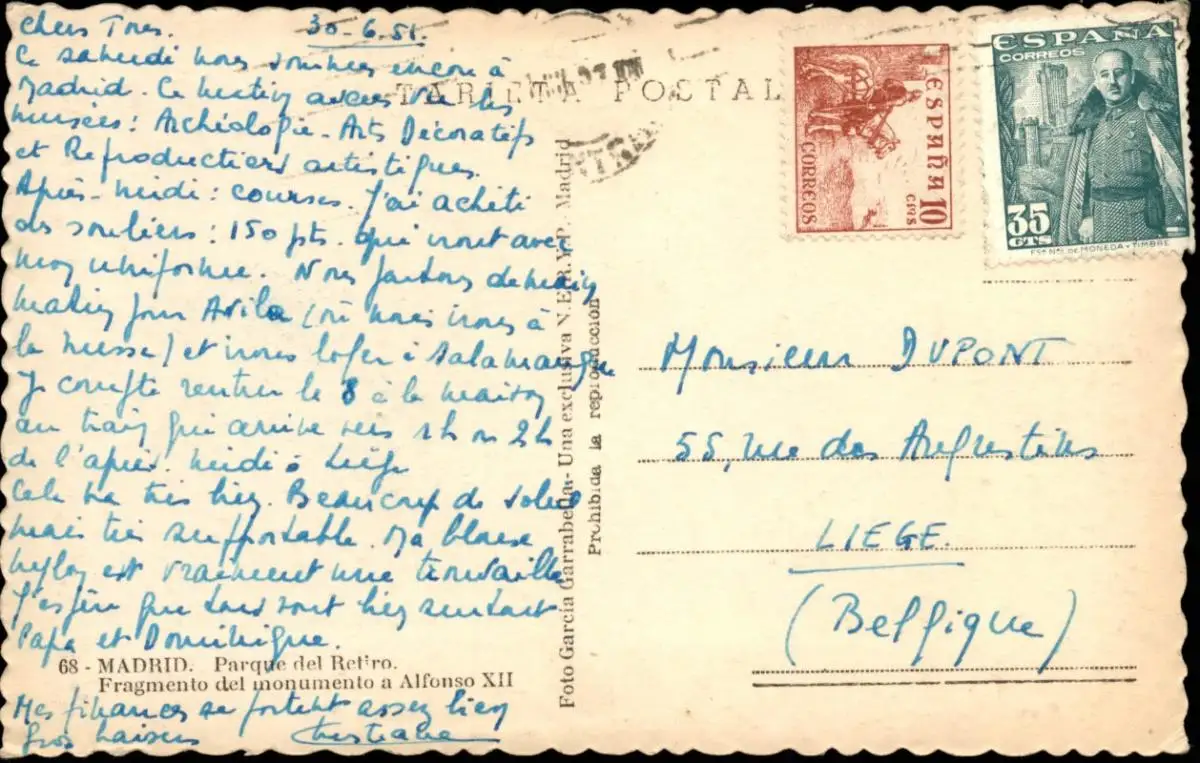 Chers Tous. 30-6.51.
Ce samedi nous sommes encore à
Madrid. Ce matin avons vu les
musées: Archéologie - Arts Décoratifs
et Reproductions artistiques.
Après-midi: courses. J'ai acheté
des souliers: 150 pts. qui iront avec
mon uniforme. Nous partons demain
matin pour Avila (où nous irons à
la messe) et irons loger à Salamanque
Je compte rentrer le 8 à la maison
au train qui arrive vers 1h ou 2h
de l'après-midi à Liège
Cela va très bien. Beaucoup de soleil
mais très supportable. Ma blouse
nylon est vraiment une trouvaille
J'espère que tous vont bien surtout
Papa et Dominique.
68 - MADRID. Parque del Retiro.
Fragmento del monumento a Alfonso XII
Mes finances se portent assez bien
Gros baisers Christiane
TARJETA POSTAL
Foto García Garrabella.- Una exclusiva V.E.R.Y.P.- Madrid
Prohibida la reproducción
ESPAÑA
CORREOS
10
CTOS
ESPAÑA
CORREOS
35
CTS
FCA NAL DE MONEDA Y TIMBRE
Monsieur DUPONT
55, rue des Augustins
LIEGE.
(Belgique)